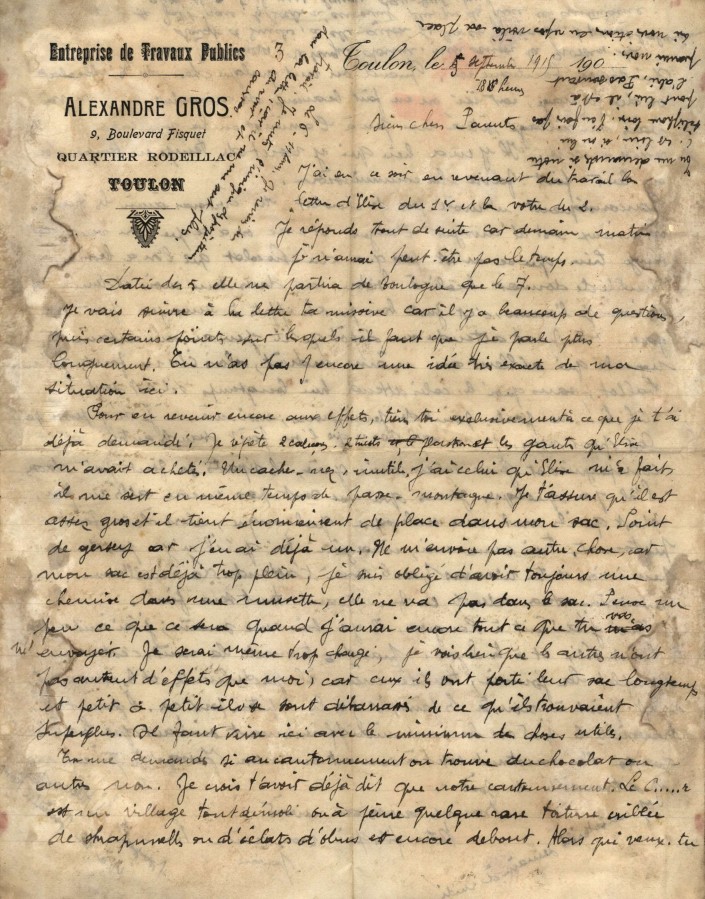 Entreprise de Travaux Publics
3
ALEXANDRE GROS
9, Boulevard Fisquet
QUARTIER RODEILLAC
TOULON
Toulon, le 5 Septembre 1915 190
18 heures
Bien chers Parents
J'ai eu ce soir en revenant du travail la
lettre d'Elise du 1er et la votre du 2.
Je réponds tout de suite car demain matin
je n'aurai peut-être pas le temps.
Datée du 5 elle ne partira de Boulogne que le 7.
Je vais suivre à la lettre ta missive car il y a beaucoup de questions,
puis certains points sur lesquels il faut que je parle plus
longuement. Tu n'as pas encore une idée très exacte de ma
situation ici.
Pour en revenir encore aux effets, tiens toi exclusivement à ce que je t'ai
déjà demandé, Je répète 2 caleçons, 2 tricots et les gants qu'Elise
m'avait achetés. Un cache-nez, inutile, j'ai celui qu'Elise m'a fait
il me sert en même temps de passe-montagne. Je t'assure qu'il est
assez gros et il tient énormément de place dans mon sac. Point
de gersey car j'en ai déjà un. Ne m'envoie pas autre chose, car
mon sac est déjà trop plein, je suis obligé d'avoir toujours une
chemise dans une musette, elle ne va pas dans le sac. Pense un
peu ce que ce sera quand j'aurai encore tout ce que tu vas
m'envoyer. Je serai même trop chargé, je vois bien que les autres n'ont
pas autant d'effets que moi, car eux ils ont porté leur sac longtemps
et petit à petit ils se sont débarrassés de ce qu'ils trouvaient
superflus. Il faut vivre ici avec le minimum de choses utiles.
Tu me demandes si au cantonnement on trouve du chocolat ou
autres non. Je crois t'avoir déjà dit que notre cantonnement. Le C.....r
est un village tout démoli où à peine quelque rare toiture criblée
de shrapnells ou d'éclats d'obus est encore debout. Alors qui veux-tu